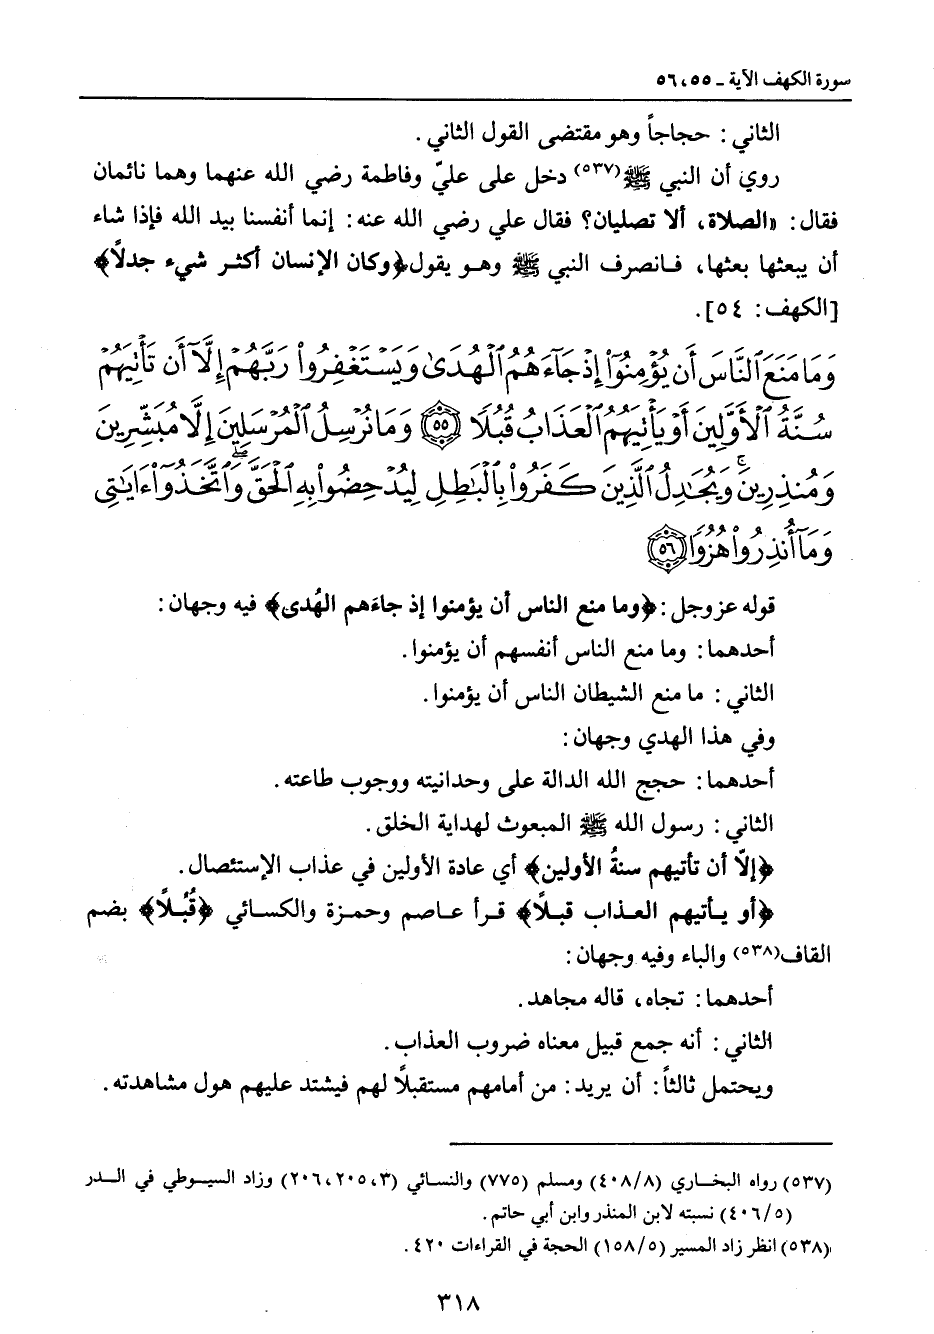 سورة الكهف الآية ـ ٥٥ ، ٥٦
الثاني : حجاجاً وهو مقتضى القول الثاني .
روي أن النبي ﷺ(٥٣٧) دخل على عليّ وفاطمة رضي الله عنهما وهما نائمان
فقال : «الصلاة ، ألا تصليان؟ فقال علي رضي الله عنه : إنما أنفسنا بيد الله فإذا شاء
أن يبعثها بعثها ، فانصرف النبي ﷺ وهو يقول ﴿وكان الإنسان أكثر شيء جدلاً﴾
[الكهف : ٥٤] .
وَمَا مَنَعَ ٱلنَّاسَ أَن يُؤْمِنُوٓا۟ إِذْ جَآءَهُمُ ٱلْهُدَىٰ وَيَسْتَغْفِرُوا۟ رَبَّهُمْ إِلَّآ أَن تَأْتِيَهُمْ
سُنَّةُ ٱلْأَوَّلِينَ أَوْ يَأْتِيَهُمُ ٱلْعَذَابُ قُبُلًا ۝٥٥ وَمَا نُرْسِلُ ٱلْمُرْسَلِينَ إِلَّا مُبَشِّرِينَ
وَمُنذِرِينَ ۚ وَيُجَٰدِلُ ٱلَّذِينَ كَفَرُوا۟ بِٱلْبَٰطِلِ لِيُدْحِضُوا۟ بِهِ ٱلْحَقَّ ۖ وَٱتَّخَذُوٓا۟ ءَايَٰتِى
وَمَآ أُنذِرُوا۟ هُزُوًا ۝٥٦
قوله عز وجل : ﴿وما منع الناس أن يؤمنوا إذ جاءَهم الهُدى﴾ فيه وجهان :
أحدهما : وما منع الناس أنفسهم أن يؤمنوا .
الثاني : ما منع الشيطان الناس أن يؤمنوا .
وفي هذا الهدي وجهان :
أحدهما : حجج الله الدالة على وحدانيته ووجوب طاعته .
الثاني : رسول الله ﷺ المبعوث لهداية الخلق .
﴿إلّا أن تأتيهم سنةُ الأولين﴾ أي عادة الأولين في عذاب الإستئصال .
﴿أو يأتيهم العذاب قبلاً﴾ قرأ عاصم وحمزة والكسائي ﴿قُبُلاً﴾ بضم
القاف(٥٣٨) والباء وفيه وجهان :
أحدهما : تجاه ، قاله مجاهد .
الثاني : أنه جمع قبيل معناه ضروب العذاب .
ويحتمل ثالثاً : أن يريد : من أمامهم مستقبلاً لهم فيشتد عليهم هول مشاهدته .
(٥٣٧) رواه البخاري (٤٠٨/٨) ومسلم (٧٧٥) والنسائي (٣ ، ٢٠٥ ، ٢٠٦) وزاد السيوطي في الدر
(٤٠٦/٥) نسبته لابن المنذر وابن أبي حاتم .
(٥٣٨) انظر زاد المسير (١٥٨/٥) الحجة في القراءات ٤٢٠ .
٣١٨